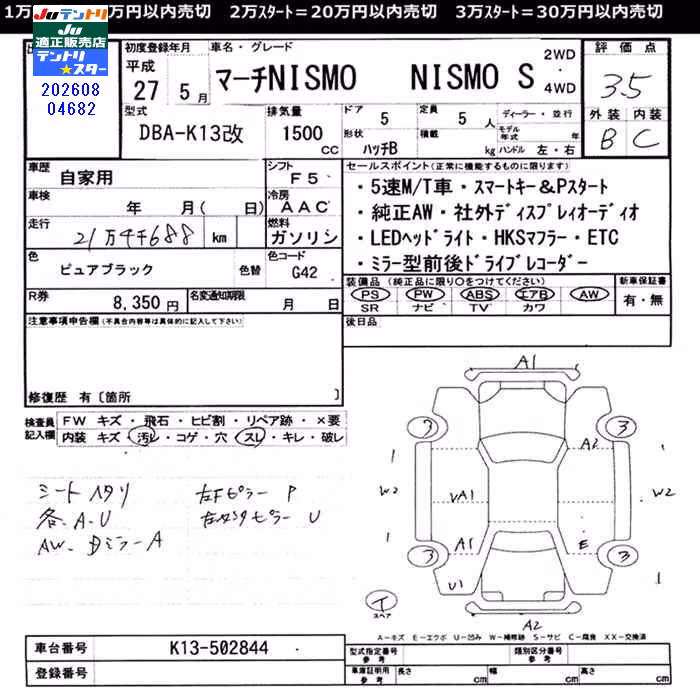 2万ｽﾀｰﾄ＝20万円以内売切 3万ｽﾀｰﾄ＝30万円以内売切
Juテントリ
Ju
適正販売店
テントリ
★スター
202608
04682
初度登録年月 車名・グレード 評価点
平成 27 5月 マーチNISMO NISMO S 2WD・4WD 3.5
型式 排気量 ドア 定員 ディーラー・並行 外装 内装
DBA-K13改 1500 CC 5 5人 モデル年式 年 B C
形状 ハッチB 積載 kg ハンドル 左・右
車歴 自家用 シフト F5 セールスポイント(正常に機能するものに限ります)
車検 年 月( 日) 冷房 AAC
・5速M/T車・スマートキー＆Pスタート
・純正AW・社外ディスプレィオーディオ
走行 21万4千688 km 燃料 ガソリン
・LEDヘッドライト・HKSマフラー・ETC
・ミラー型前後ドライブレコーダー
色 ピュアブラック 色替 色コード G42
装備品(純正品に限り○をつけてください) 新車保証書
PS PW ABS エアB AW 有・無
SR ナビ TV カワ
R券 8,350円 名変通知期限 月 日
後日品
注意事項申告欄(不具合内容等は具体的に記入して下さい)
修復歴 有〔箇所 〕
検査員記入欄 FW キズ・飛石・ヒビ割・リペア跡・×要
内装 キズ・汚レ・コゲ・穴・スレ・キレ・破レ
シートハタリ 左Fピラー P
各.A.U U
AW.DミラーA
A1
3 3
A2
1 1
W2 VA1 W2
1
A1 E
3 3
U1 1
イ
スペア
A2
A－キズ E－エクボ U－凹み W－補修跡 S－サビ C－腐食 XX－交換済
車台番号 K13-502844 型式指定番号 参考 類別区分番号 参考
登録番号 車庫証明用 参考 長さ cm 幅 cm 高さ cm